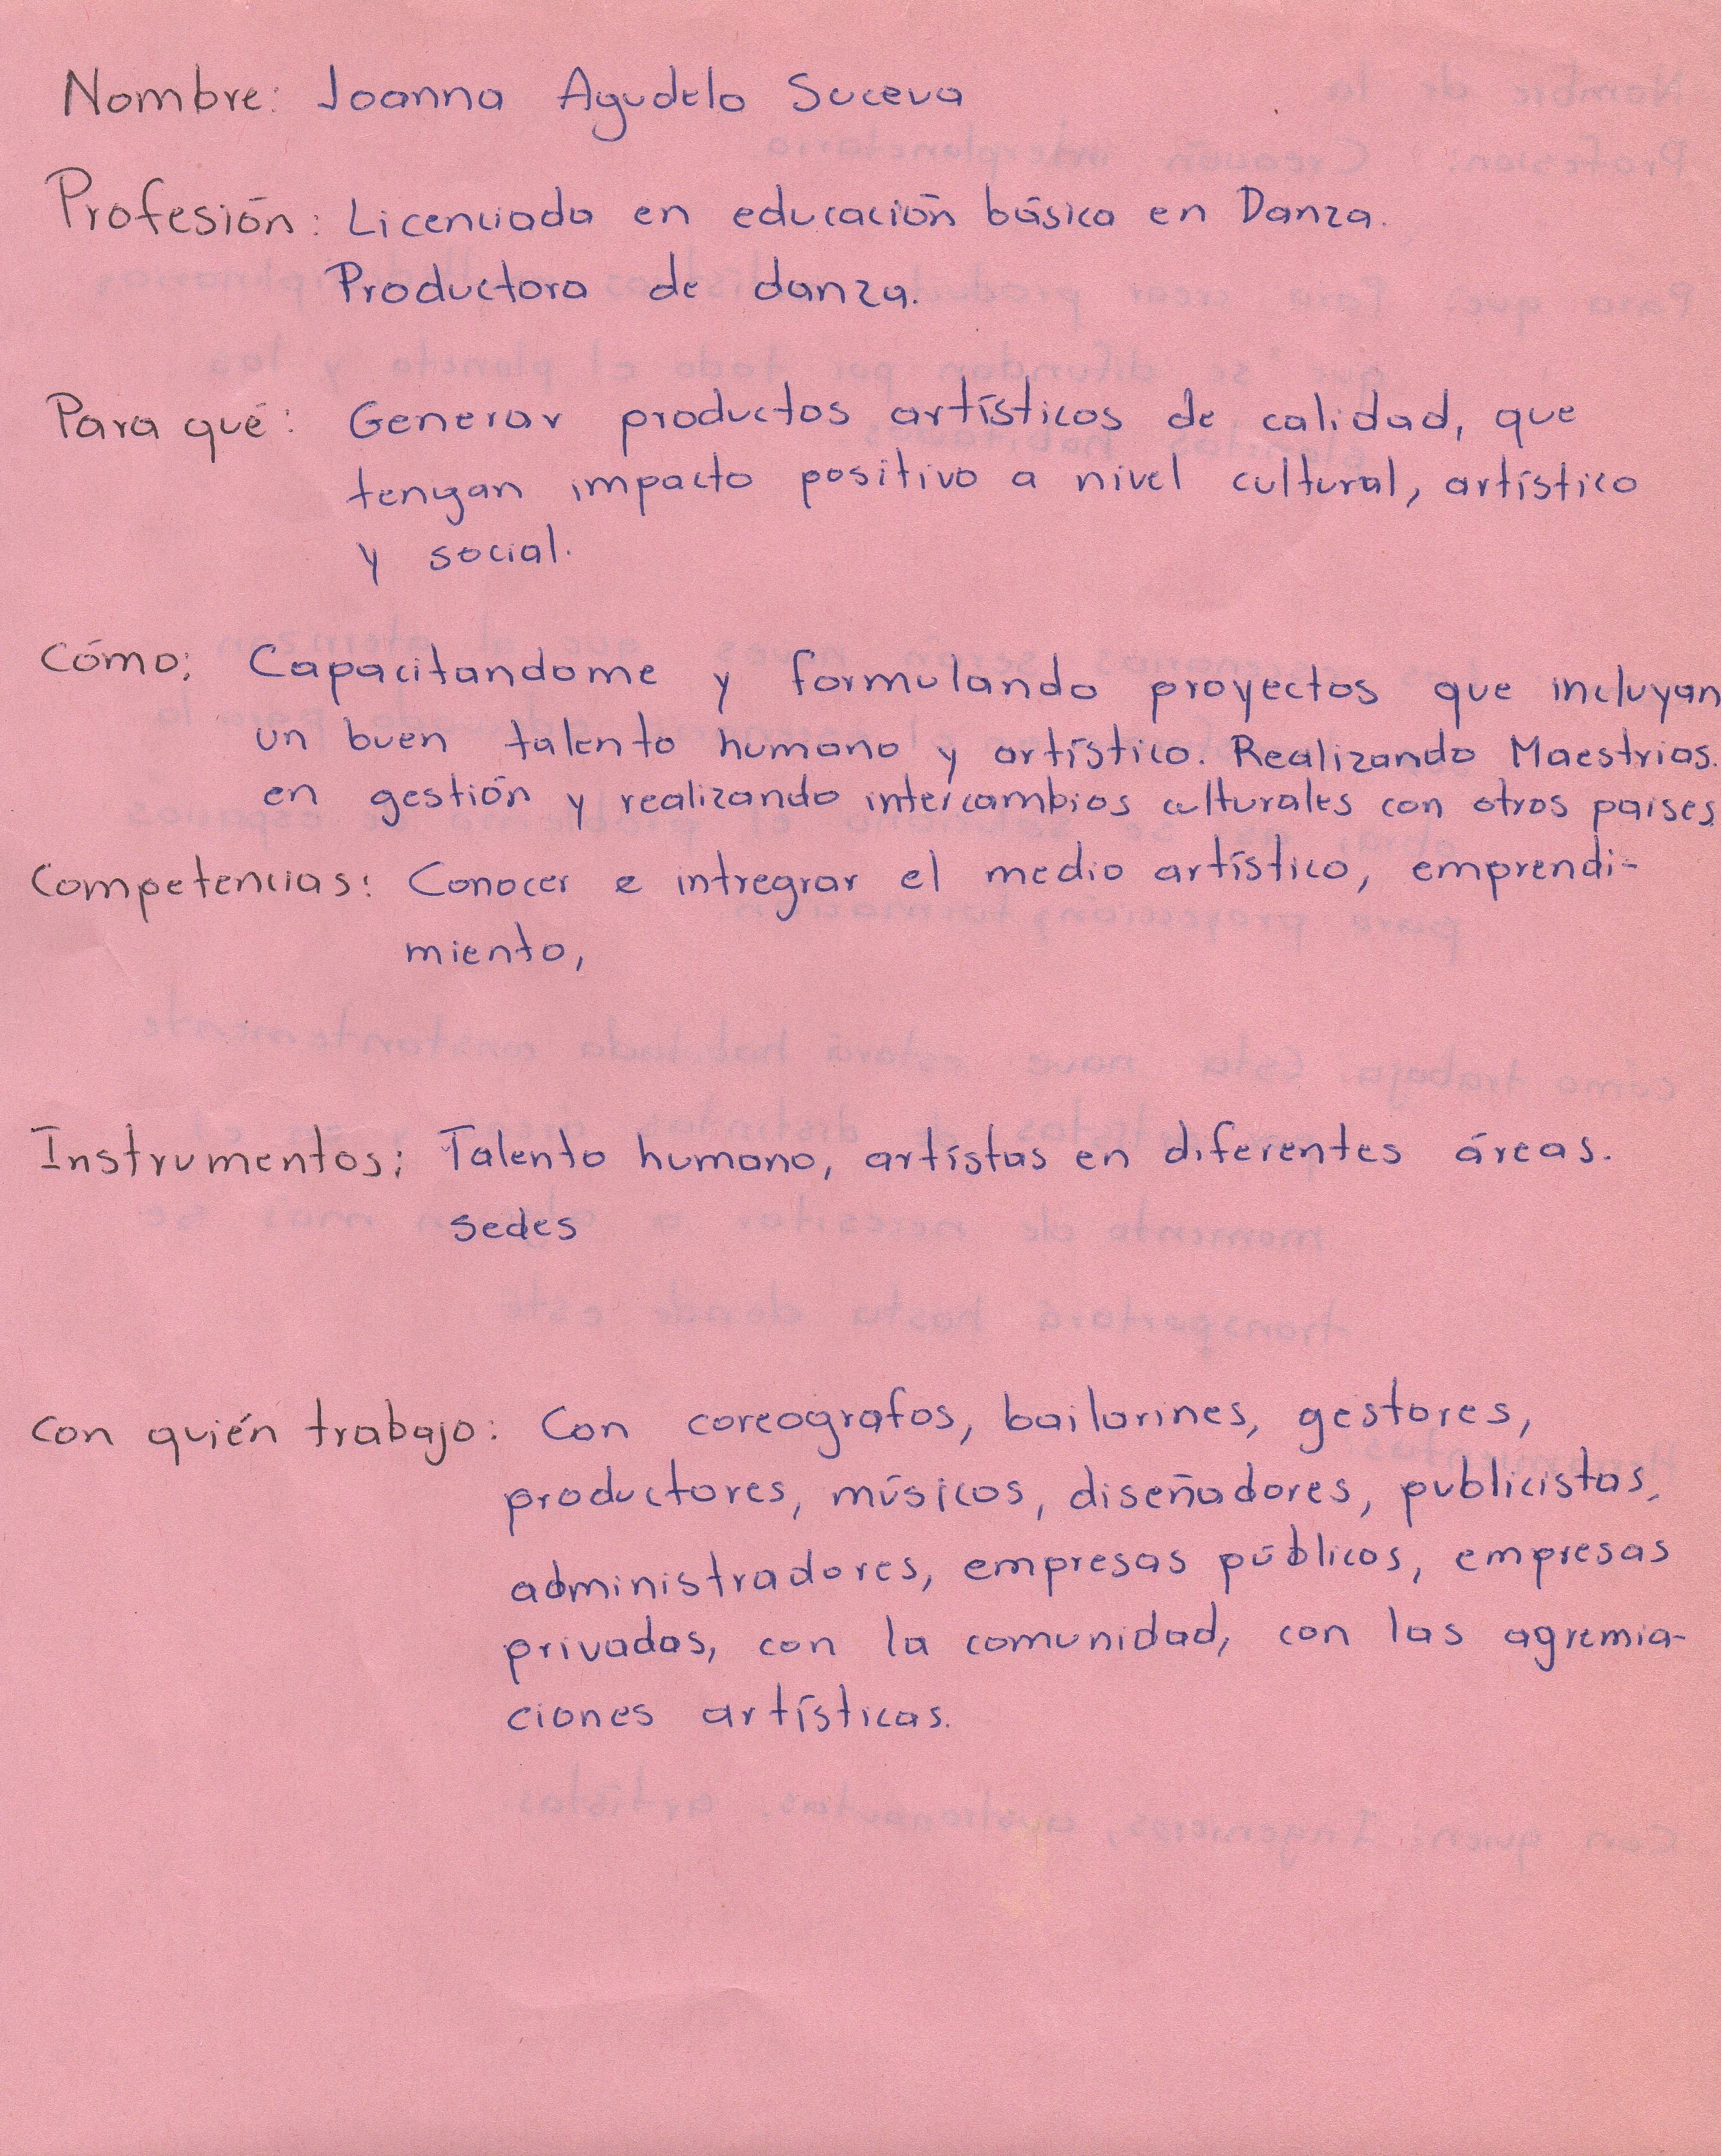 Nombre: Joanna Agudelo Suceva
Profesión: Licenciada en educación básica en Danza.
Productora de danza.
Para qué: Generar productos artísticos de calidad, que
tengan impacto positivo a nivel cultural, artístico
y social.
Cómo: Capacitandome y formulando proyectos que incluyan
un buen talento humano y artístico. Realizando Maestrias.
en gestión y realizando intercambios culturales con otros paises.
Competencias: Conocer e intregrar el medio artístico, emprendi-
miento,
Instrumentos: Talento humano, artístas en diferentes áreas.
sedes
con quién trabajo: Con coreografos, bailarines, gestores,
productores, músicos, diseñadores, publicistas,
administradores, empresas públicos, empresas
privadas, con la comunidad, con las agremia-
ciones artísticas.